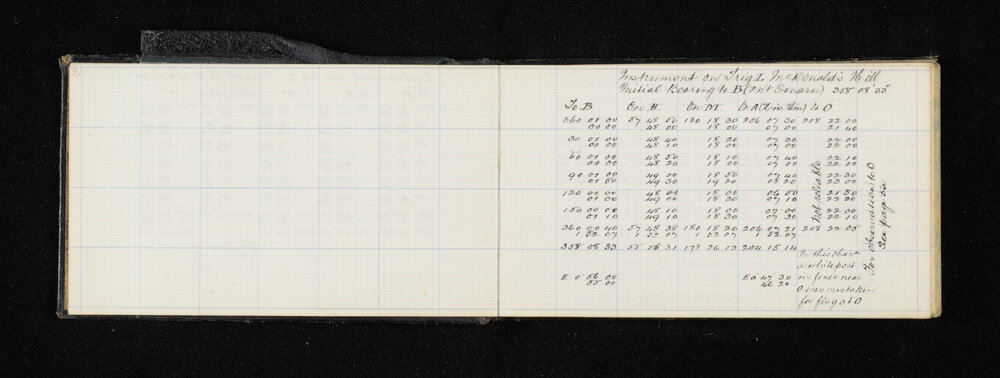 Instrument on Trig. L McDonald's Hill
Initial Bearing to B (Mt Omaru) 358° 08' 33"
To B On H On M On A (Kimi Kimi) On O
360 01 00 57 48 50 180 18 30 206 07 30 208 22 00
00 00 48 00 18 00 07 00 21 40
30 01 00 48 40 18 20 07 30 22 00
00 00 48 10 18 00 07 00 22 00
60 01 00 48 50 18 10 07 40 22 10
00 00 48 20 18 00 07 00 22 00
90 01 00 49 00 18 50 07 40 22 30
01 00 49 30 19 20 08 20 23 00
120 00 00 48 00 18 00 06 50 21 30
01 00 49 00 18 20 07 10 22 20
150 00 00 48 10 18 00 07 00 22 00
01 10 49 10 18 30 07 30 22 10
360 00 40 57 48 38 180 18 20 206 07 21 208 22 05
1 52 07 1 52 07 1 52 07 1 52 07
358 08 33 55 56 31 178 26 13 204 15 14
E 0 56 00 E 0 47 30
55 00 46 20
In this obsern
a white post
on fence near
O was mistaken
for flag at O
not reliable
For observations to O
See page 5a